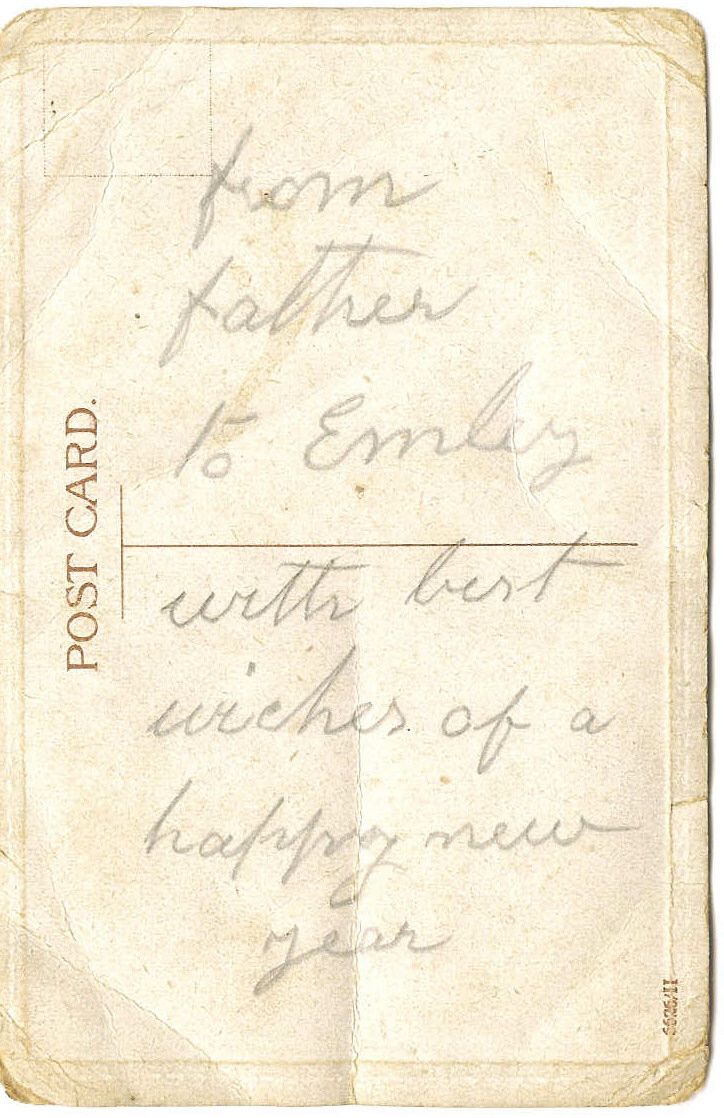 from
father
to Emley
with best
wiches of a
happy new
year
POST CARD.